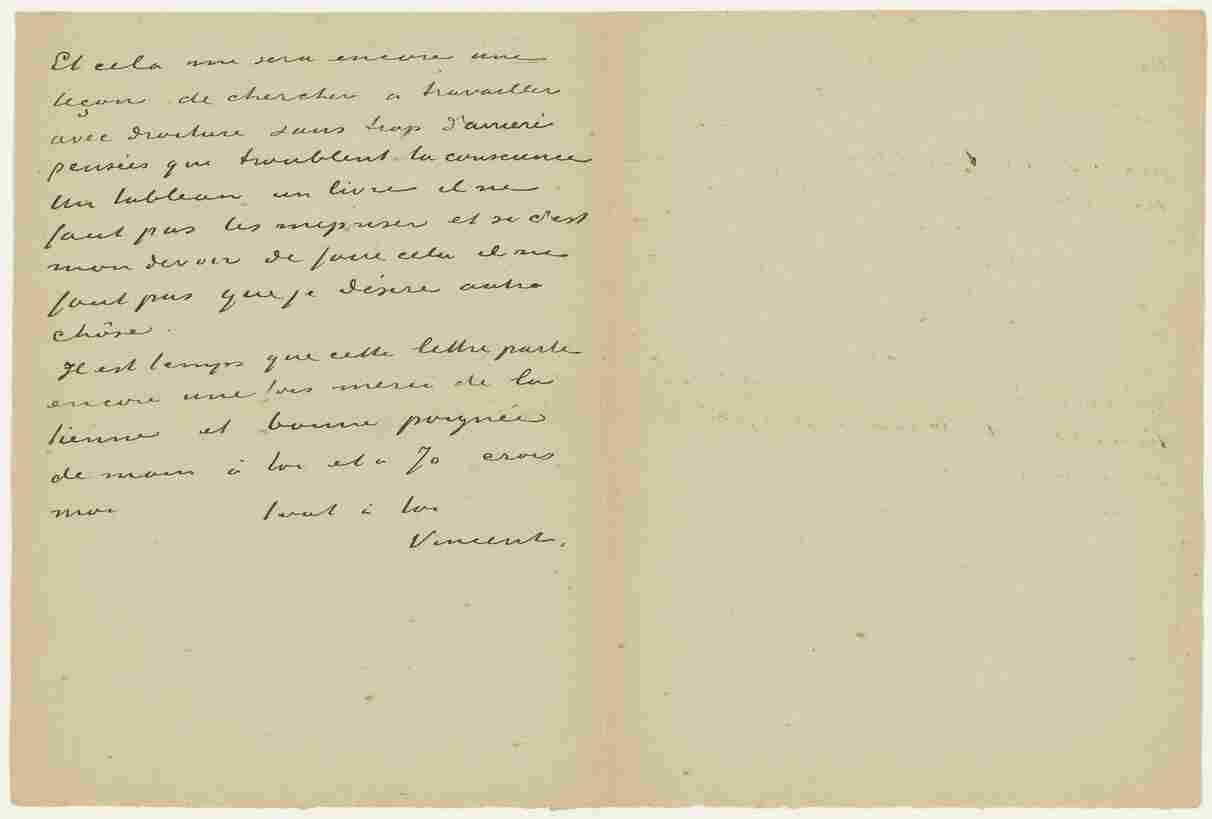 Et cela me sera encore une
leçon de chercher a travailler
avec droiture sans trop d'arrieri
pensées que troublent la conscience
Un tableau un livre il ne
faut pas les mepriser et si c'est
mon devoir de faire cela il ne
faut pas que je désire autre
chôse.
Il est temps que cette lettre parte
encore une fois merci de la
tienne et bonne poignée
de main à toi et a Jo crois
moi tout à toi
Vincent.